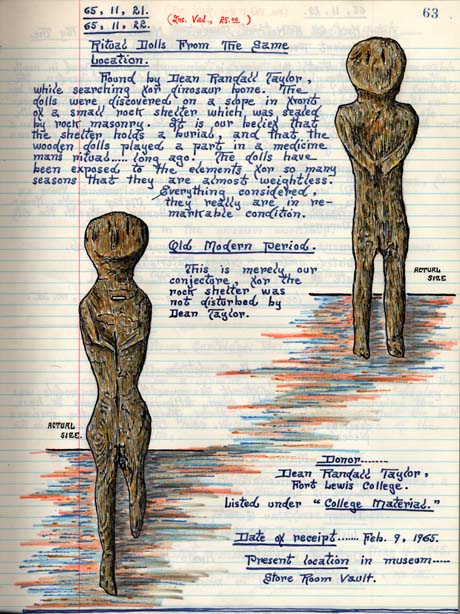 65, 11, 21.
65, 11, 22.
(Ins. Val., 25.00)
63
Ritual Dolls From The Same
Location.
Found by Dean Randall Taylor,
while searching for dinosaur bone. The
dolls were discovered on a slope in front
of a small rock shelter which was sealed
by rock masonry. It is our belief that
the shelter holds a burial, and that the
wooden dolls played a part in a medicine
mans ritual..... long ago. The dolls have
been exposed to the elements for so many
seasons that they are almost weightless.
Everything considered,
they really are in re-
markable condition.
Old Modern Period.
This is merely our
conjecture, for the
rock shelter was
not disturbed by
Dean Taylor.
ACTUAL
SIZE
ACTUAL
SIZE.
Donor.......
Dean Randall Taylor,
Fort Lewis College.
Listed under "College Material."
Date of receipt....... Feb. 9, 1965.
Present location in museum.....
Store Room Vault.